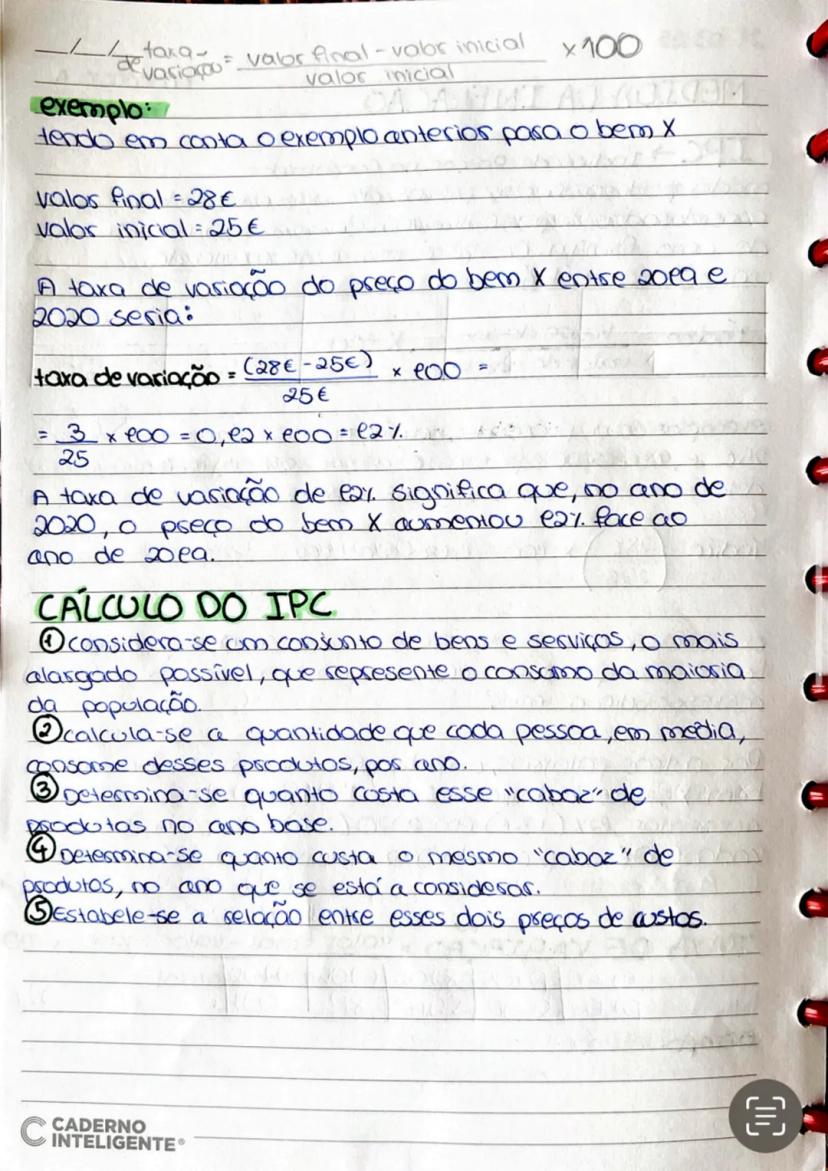 __/__/__ taxa de variação = valor final - valor inicial / valor inicial × 100
exemplo:
tendo em conta o exemplo anterior para o bem X
valor final = 28€
valor inicial = 25€
A taxa de variação do preço do bem X entre 2019 e
2020 seria:
taxa de variação = (28€ - 25€) / 25€ × 100 =
= 3/25 × 100 = 0,12 × 100 = 12%
A taxa de variação de 12% significa que, no ano de
2020, o preço do bem X aumentou 12% face ao
ano de 2019.
CÁLCULO DO IPC
① considera-se um conjunto de bens e serviços, o mais
alargado possível, que represente o consumo da maioria
da população.
② calcula-se a quantidade que cada pessoa, em média,
consome desses produtos, por ano.
③ Determina-se quanto costa esse "cabaz" de
produtos no ano base.
④ Determina-se quanto custa o mesmo "cabaz" de
produtos, no ano que se está a considerar.
⑤ Estabele-se a relação entre esses dois preços de custos.
CADERNO
INTELIGENTE®